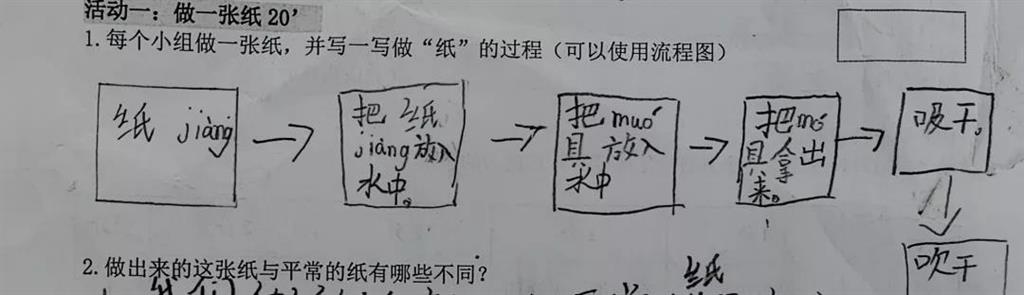 活动一：做一张纸 20’
1.每个小组做一张纸，并写一写做“纸”的过程（可以使用流程图）
纸 jiàng
把 纸
jiàng放入
水中。
把 muó
具 放入
水中
把mó
具拿出
来。
吸干。
吹干
2.做出来的这张纸与平常的纸有哪些不同？
纸